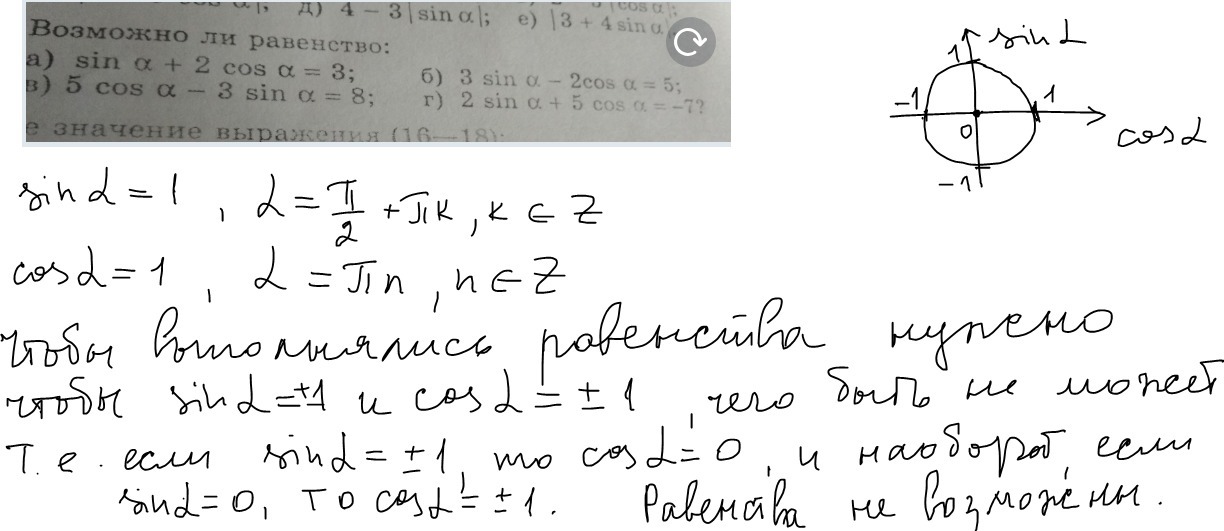 д) 4 − 3|sin α|; е) |3 + 4 sin α
Возможно ли равенство:
а) sin α + 2 cos α = 3; б) 3 sin α − 2cos α = 5;
в) 5 cos α − 3 sin α = 8; г) 2 sin α + 5 cos α = −7?
е значение выражения (16—18):
sin α
1
−1 1
0
cos α
−1
sin α = 1, α = π/2 + πк, к ∈ Z
cos α = 1, α = πn, n ∈ Z
чтобы выполнялись равенства нужно
чтобы sin α = ±1 и cos α = ± 1, чего быть не может
Т.е. если sin α = ± 1, то cos α = 0, и наоборот, если
sin α = 0, то cos α = ± 1. Равенства не возможны.